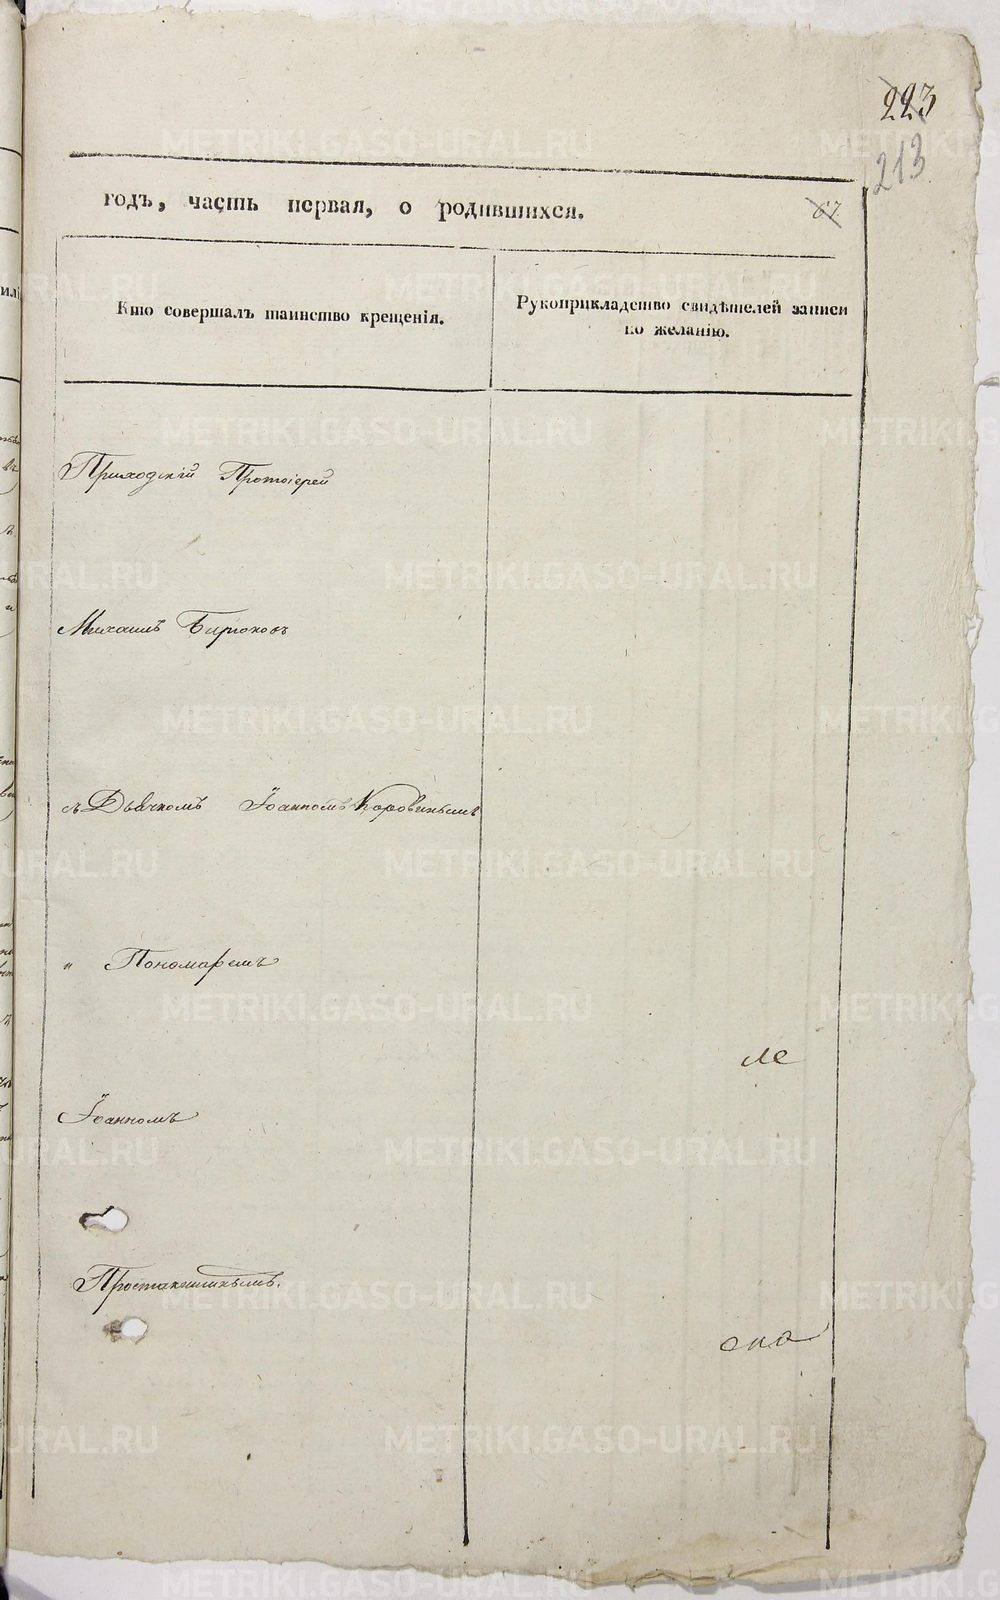 223
213
67
годъ, часть первая, о родившихся.
Кто совершалъ таинство крещенія.
Рукоприкладство свидѣтелей записи
по желанію.
Приходскій Протоіерей
Михаилъ Бирюковъ
съ Дьячкомъ Іоанномъ Коровинымъ
и Пономаремъ
Іоанномъ
METRIKI.GASO-URAL.RU